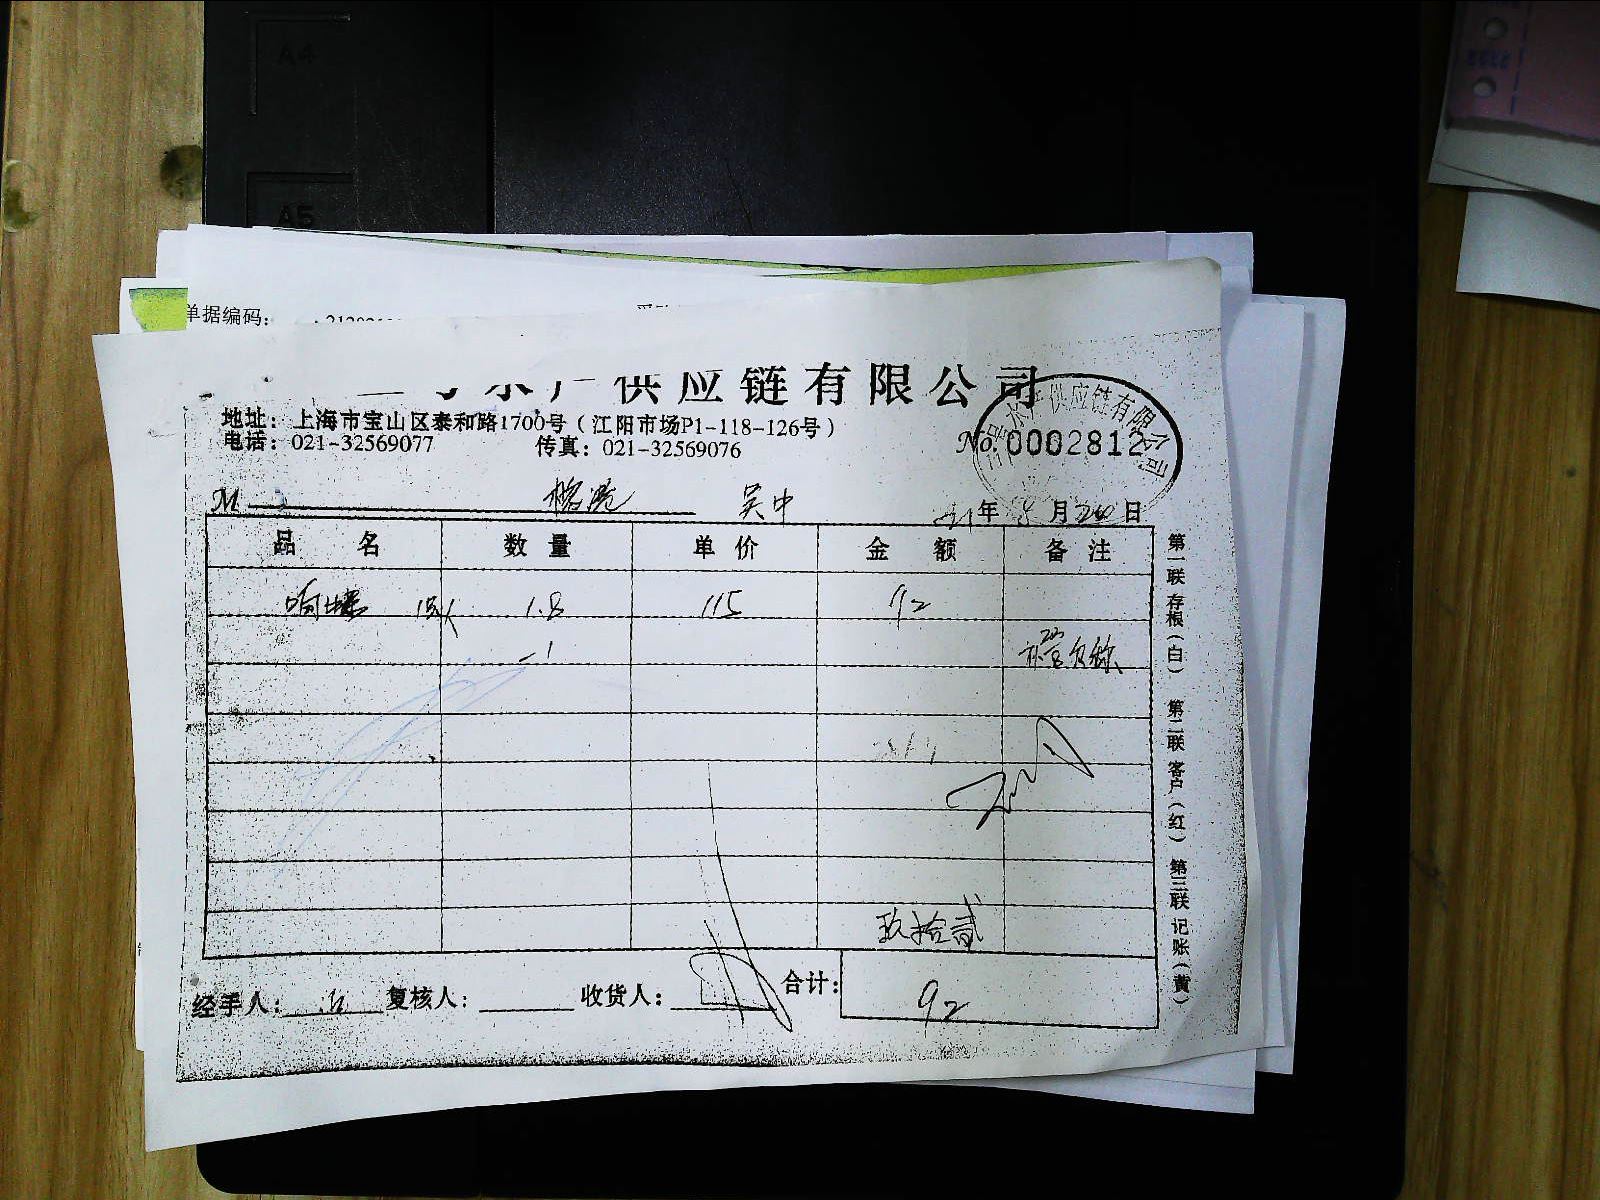 A4
A5
单据编码:
水产供应链有限公司
地址：上海市宝山区泰和路1700号（江阳市场P1-118-126号）
电话：021-32569077 传真：021-32569076
No. 0002812
水产供应链有限公司
M 榕港 吴中 21年 月20日
品 名 数 量 单 价 金 额 备 注
响螺 1.8 115 92
-1
玖拾贰
经手人： 复核人： 收货人： 合计： 92
第一联 存根（白） 第二联 客户（红） 第三联 记账（黄）